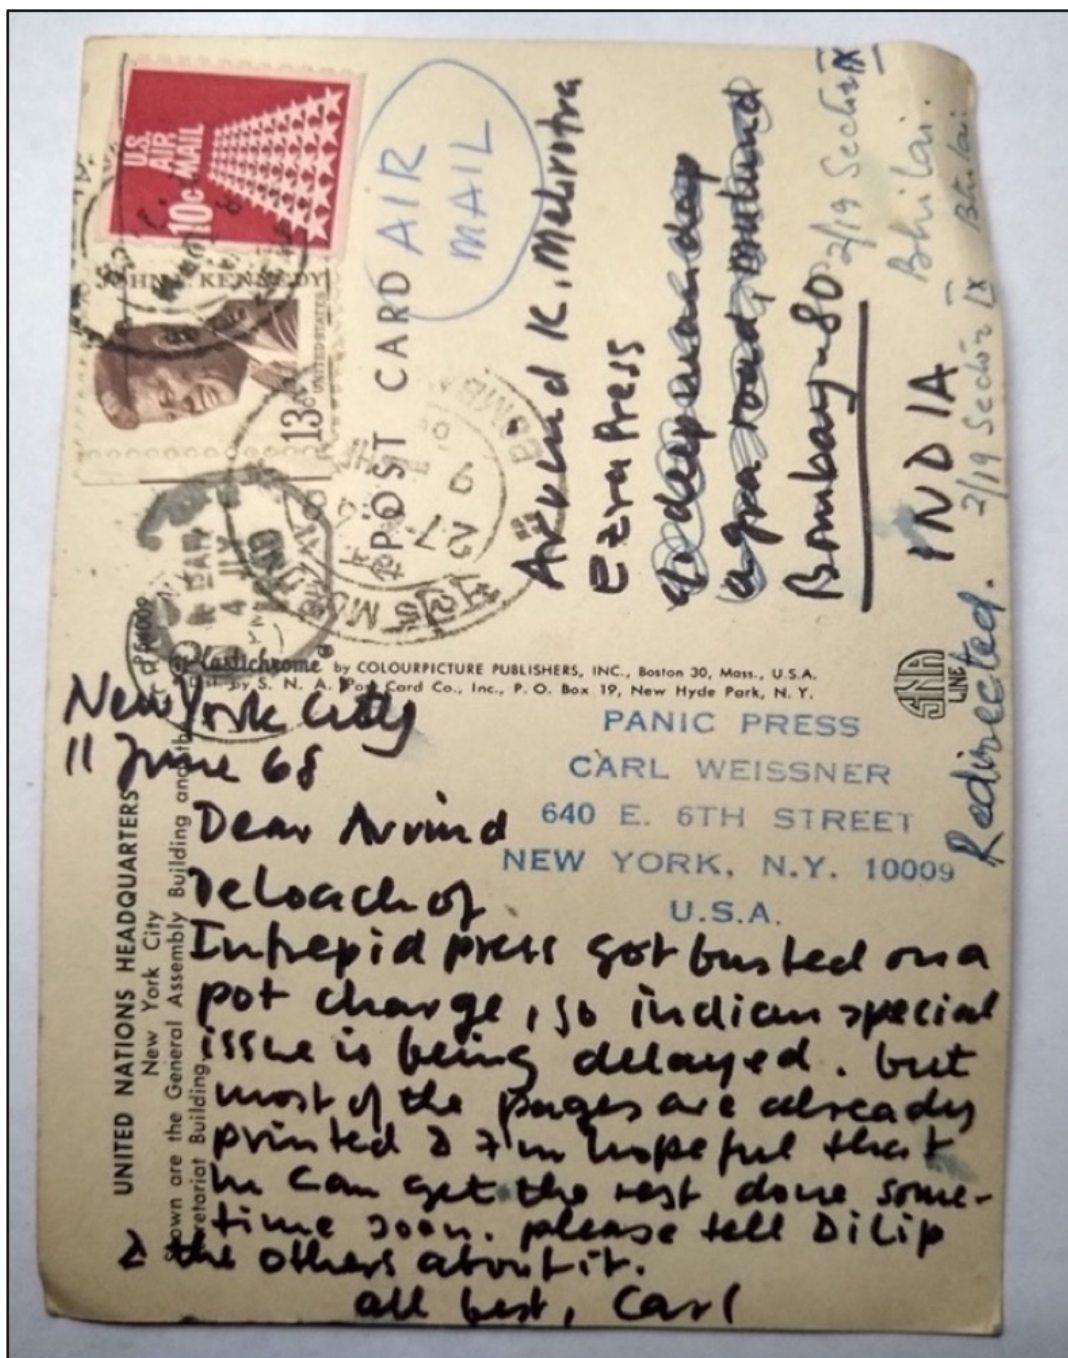 U.S.
AIR
MAIL
10c
JOHN F. KENNEDY
UNITED STATES
13c
AIR
MAIL
POST CARD
BOMBAY
Arvind K. Mehrotra
Ezra Press
agra road, mulund
Bombay-80.
INDIA
2/19 Sector IX
Bhilai.
2/19 Sector IX
Bhilai
Redirected.
Plastichrome® by COLOURPICTURE PUBLISHERS, INC., Boston 30, Mass., U.S.A.
Dist. by S. N. A. Post Card Co., Inc., P. O. Box 19, New Hyde Park, N. Y.
SNA
LINE
PANIC PRESS
CARL WEISSNER
640 E. 6TH STREET
NEW YORK, N.Y. 10009
U.S.A.
UNITED NATIONS HEADQUARTERS
New York City
own are the General Assembly Building and the
retariat Building
New York City
11 June 68
Dear Arvind
DeLoach of
Intrepid press got busted on a
pot charge, so indian special
issue is being delayed. but
most of the pages are already
printed & I'm hopeful that
he can get the rest done some-
time soon. please tell Dilip
& the others about it.
all best, Carl